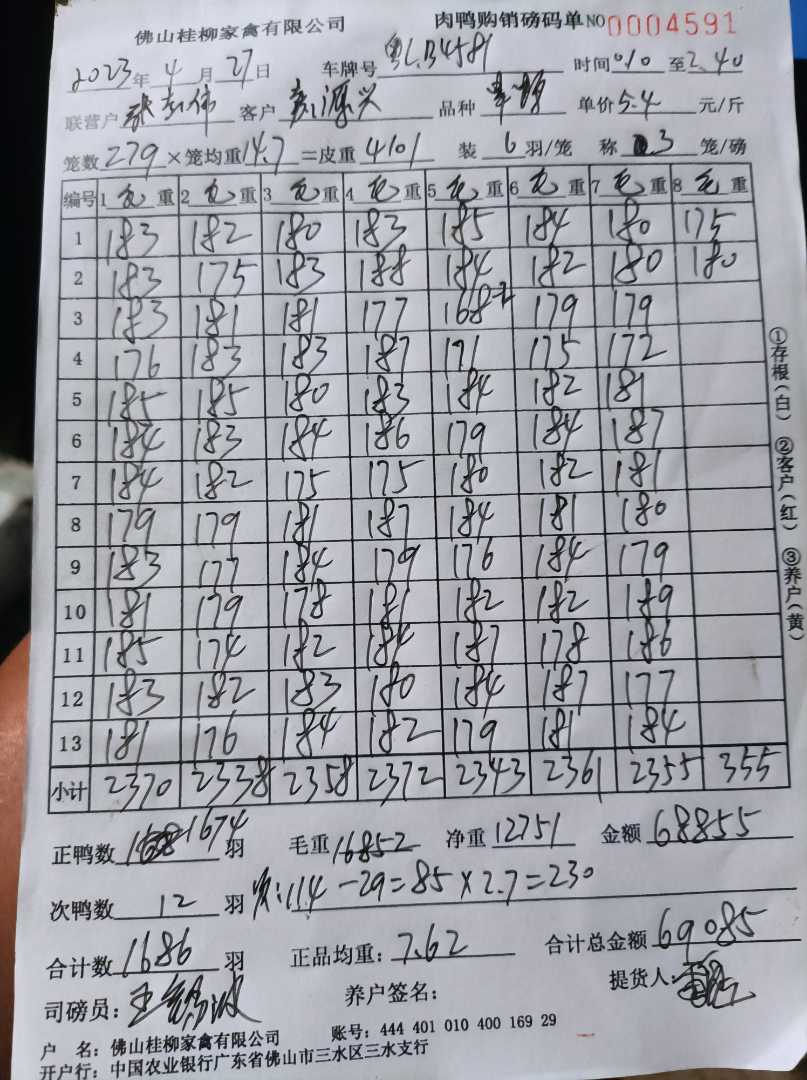 佛山桂柳家禽有限公司 肉鸭购销磅码单 NO 0004591
2023年4月27日 车牌号 粤L.B4581 时间 010 至 2.40
联营户 张彭伟 客户 源兴 品种 单价 5.4 元/斤
笼数 279 ×笼均重 14.7 =皮重 4101 装 6 羽/笼 称 3 笼/磅
编号 1 毛 重 2 毛 重 3 毛 重 4 毛 重 5 毛 重 6 毛 重 7 毛 重 8 毛 重
1 183 182 180 183 185 184 180 175
2 183 175 183 188 184 182 180 180
3 183 181 181 177 168-2 179 179
4 176 183 183 187 171 175 172
5 185 185 180 183 184 182 181
6 184 183 184 186 179 184 187
7 184 182 175 175 180 182 181
8 179 179 181 187 184 181 180
9 183 177 184 179 176 184 179
10 181 179 178 181 182 182 189
11 185 174 182 184 187 178 186
12 183 182 183 180 184 187 177
13 181 176 184 182 179 181 184
小计 2370 2338 2358 2372 2343 2361 2355 355
①存根(白) ②客户(红) ③养户(黄)
正鸭数 1674 羽 毛重 16852 净重 12751 金额 68855
次鸭数 12 羽 次:114-29=85×2.7=230
合计数 1686 羽 正品均重: 7.62 合计总金额 69085
司磅员: 王 波 养户签名: 提货人:
户 名: 佛山桂柳家禽有限公司 账号: 444 401 010 400 169 29
开户行: 中国农业银行广东省佛山市三水区三水支行